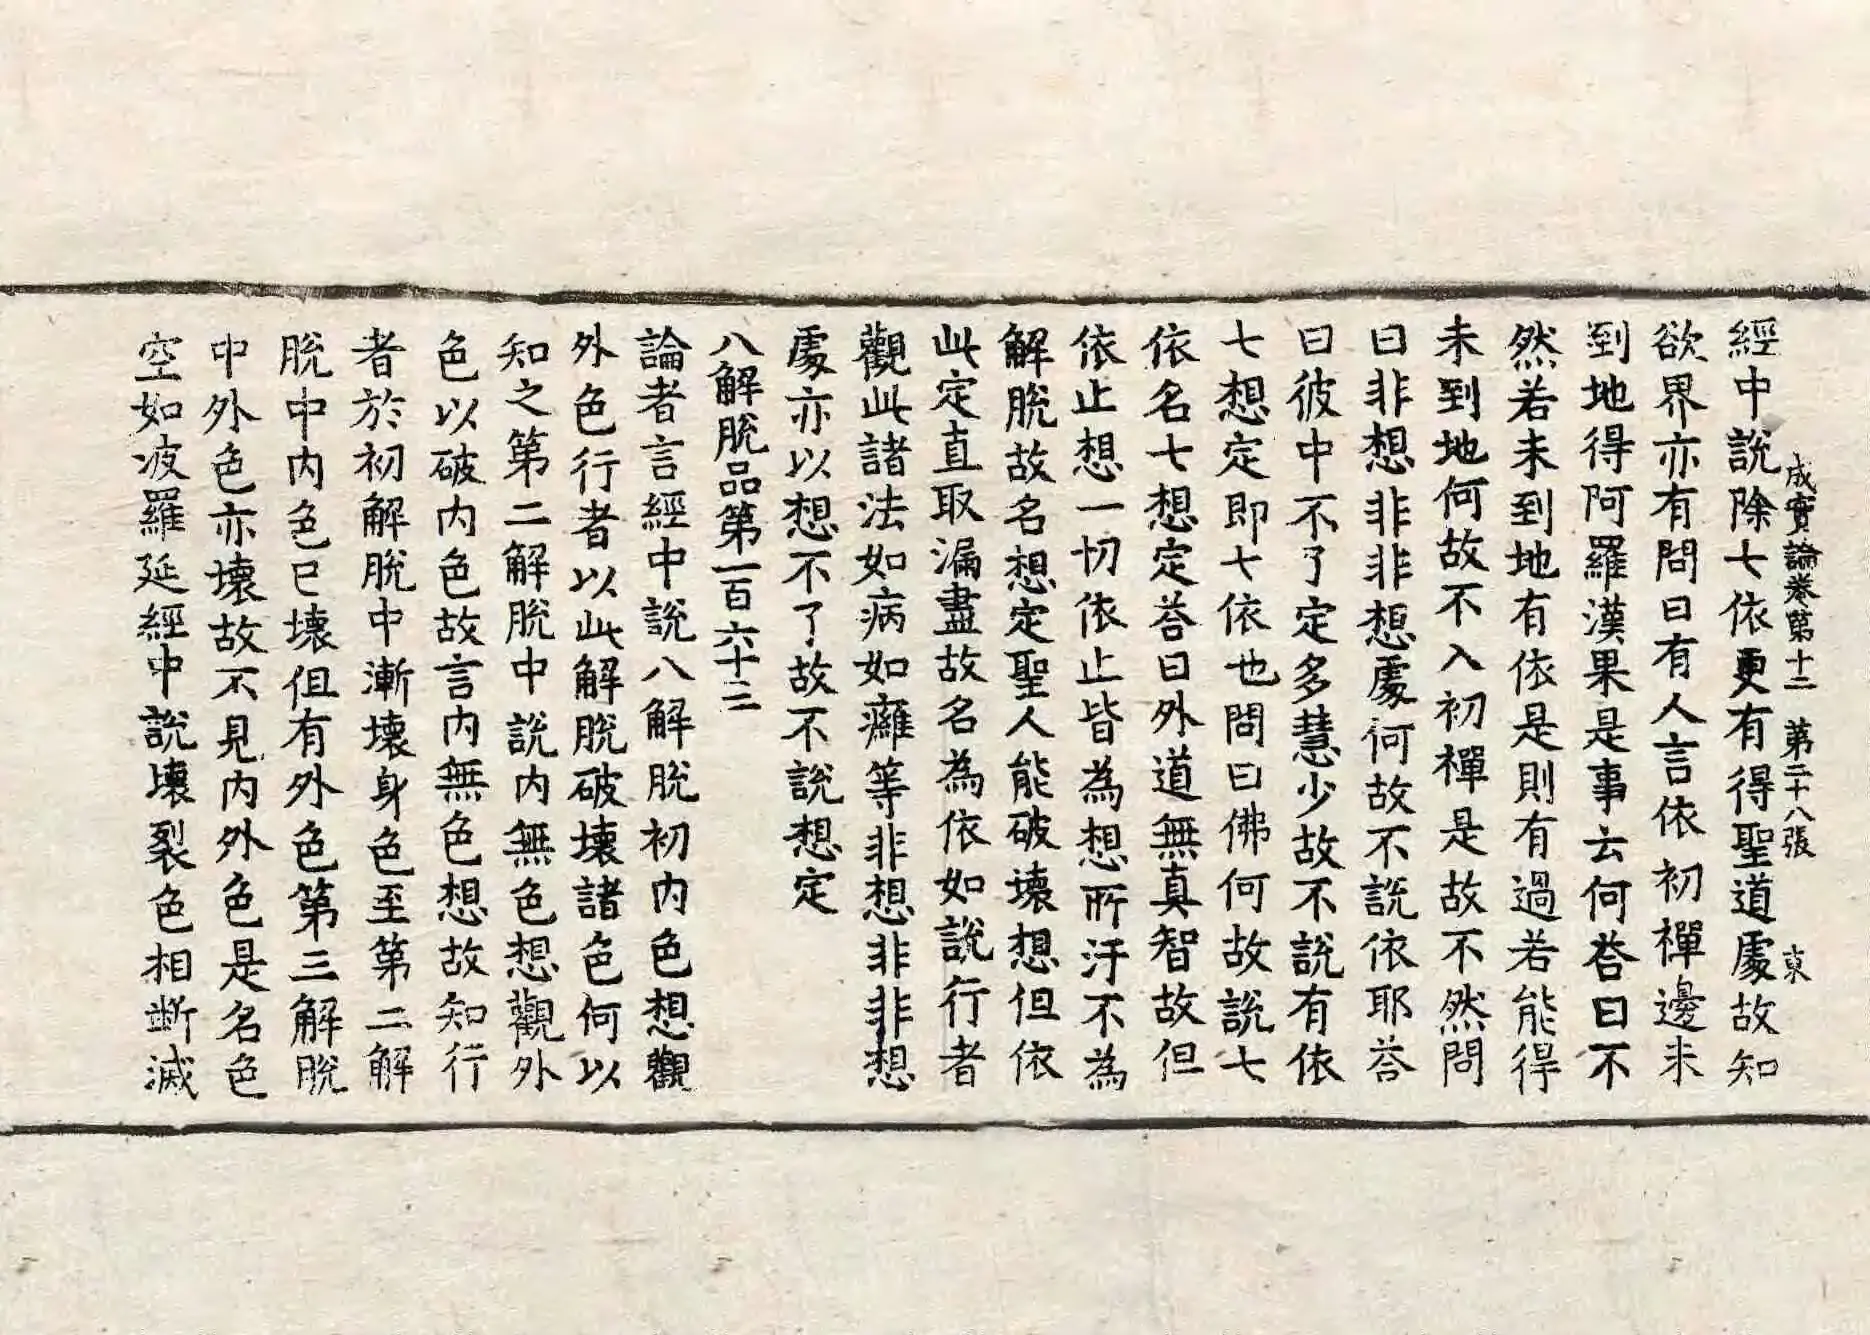 成實論卷第十二 第二十八張 東
經中說除七依更有得聖道處故知
欲界亦有問曰有人言依初禪邊未
到地得阿羅漢果是事云何荅曰不
然若未到地有依是則有過若能得
未到地何故不入初禪是故不然問
曰非想非非想處何故不說依耶荅
曰彼中不了定多慧少故不說有依
七想定即七依也問曰佛何故說七
依名七想定荅曰外道無真智故但
依止想一切依止皆為想所汙不為
解脫故名想定聖人能破壞想但依
此定直取漏盡故名為依如說行者
觀此諸法如病如癰等非想非非想
處亦以想不了故不說想定
八解脫品第一百六十三
論者言經中說八解脫初內色想觀
外色行者以此解脫破壞諸色何以
知之第二解脫中說內無色想觀外
色以破內色故言內無色想故知行
者於初解脫中漸壞身色至第二解
脫中內色已壞但有外色第三解脫
中外色亦壞故不見內外色是名色
空如波羅延經中說壞裂色相斷滅